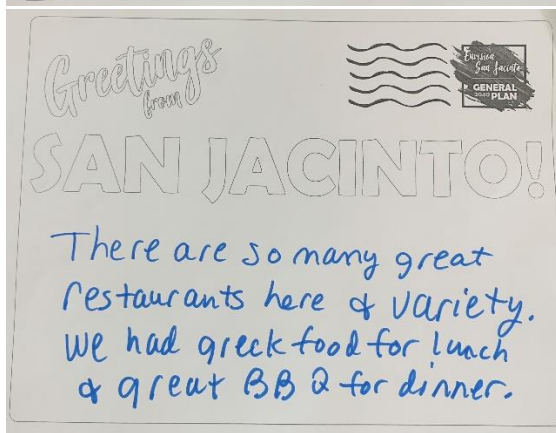 Greetings
from
Envision
San Jacinto
GENERAL
2040 PLAN
SAN JACINTO!
There are so many great
restaurants here & variety.
We had greek food for lunch
& great BBQ for dinner.